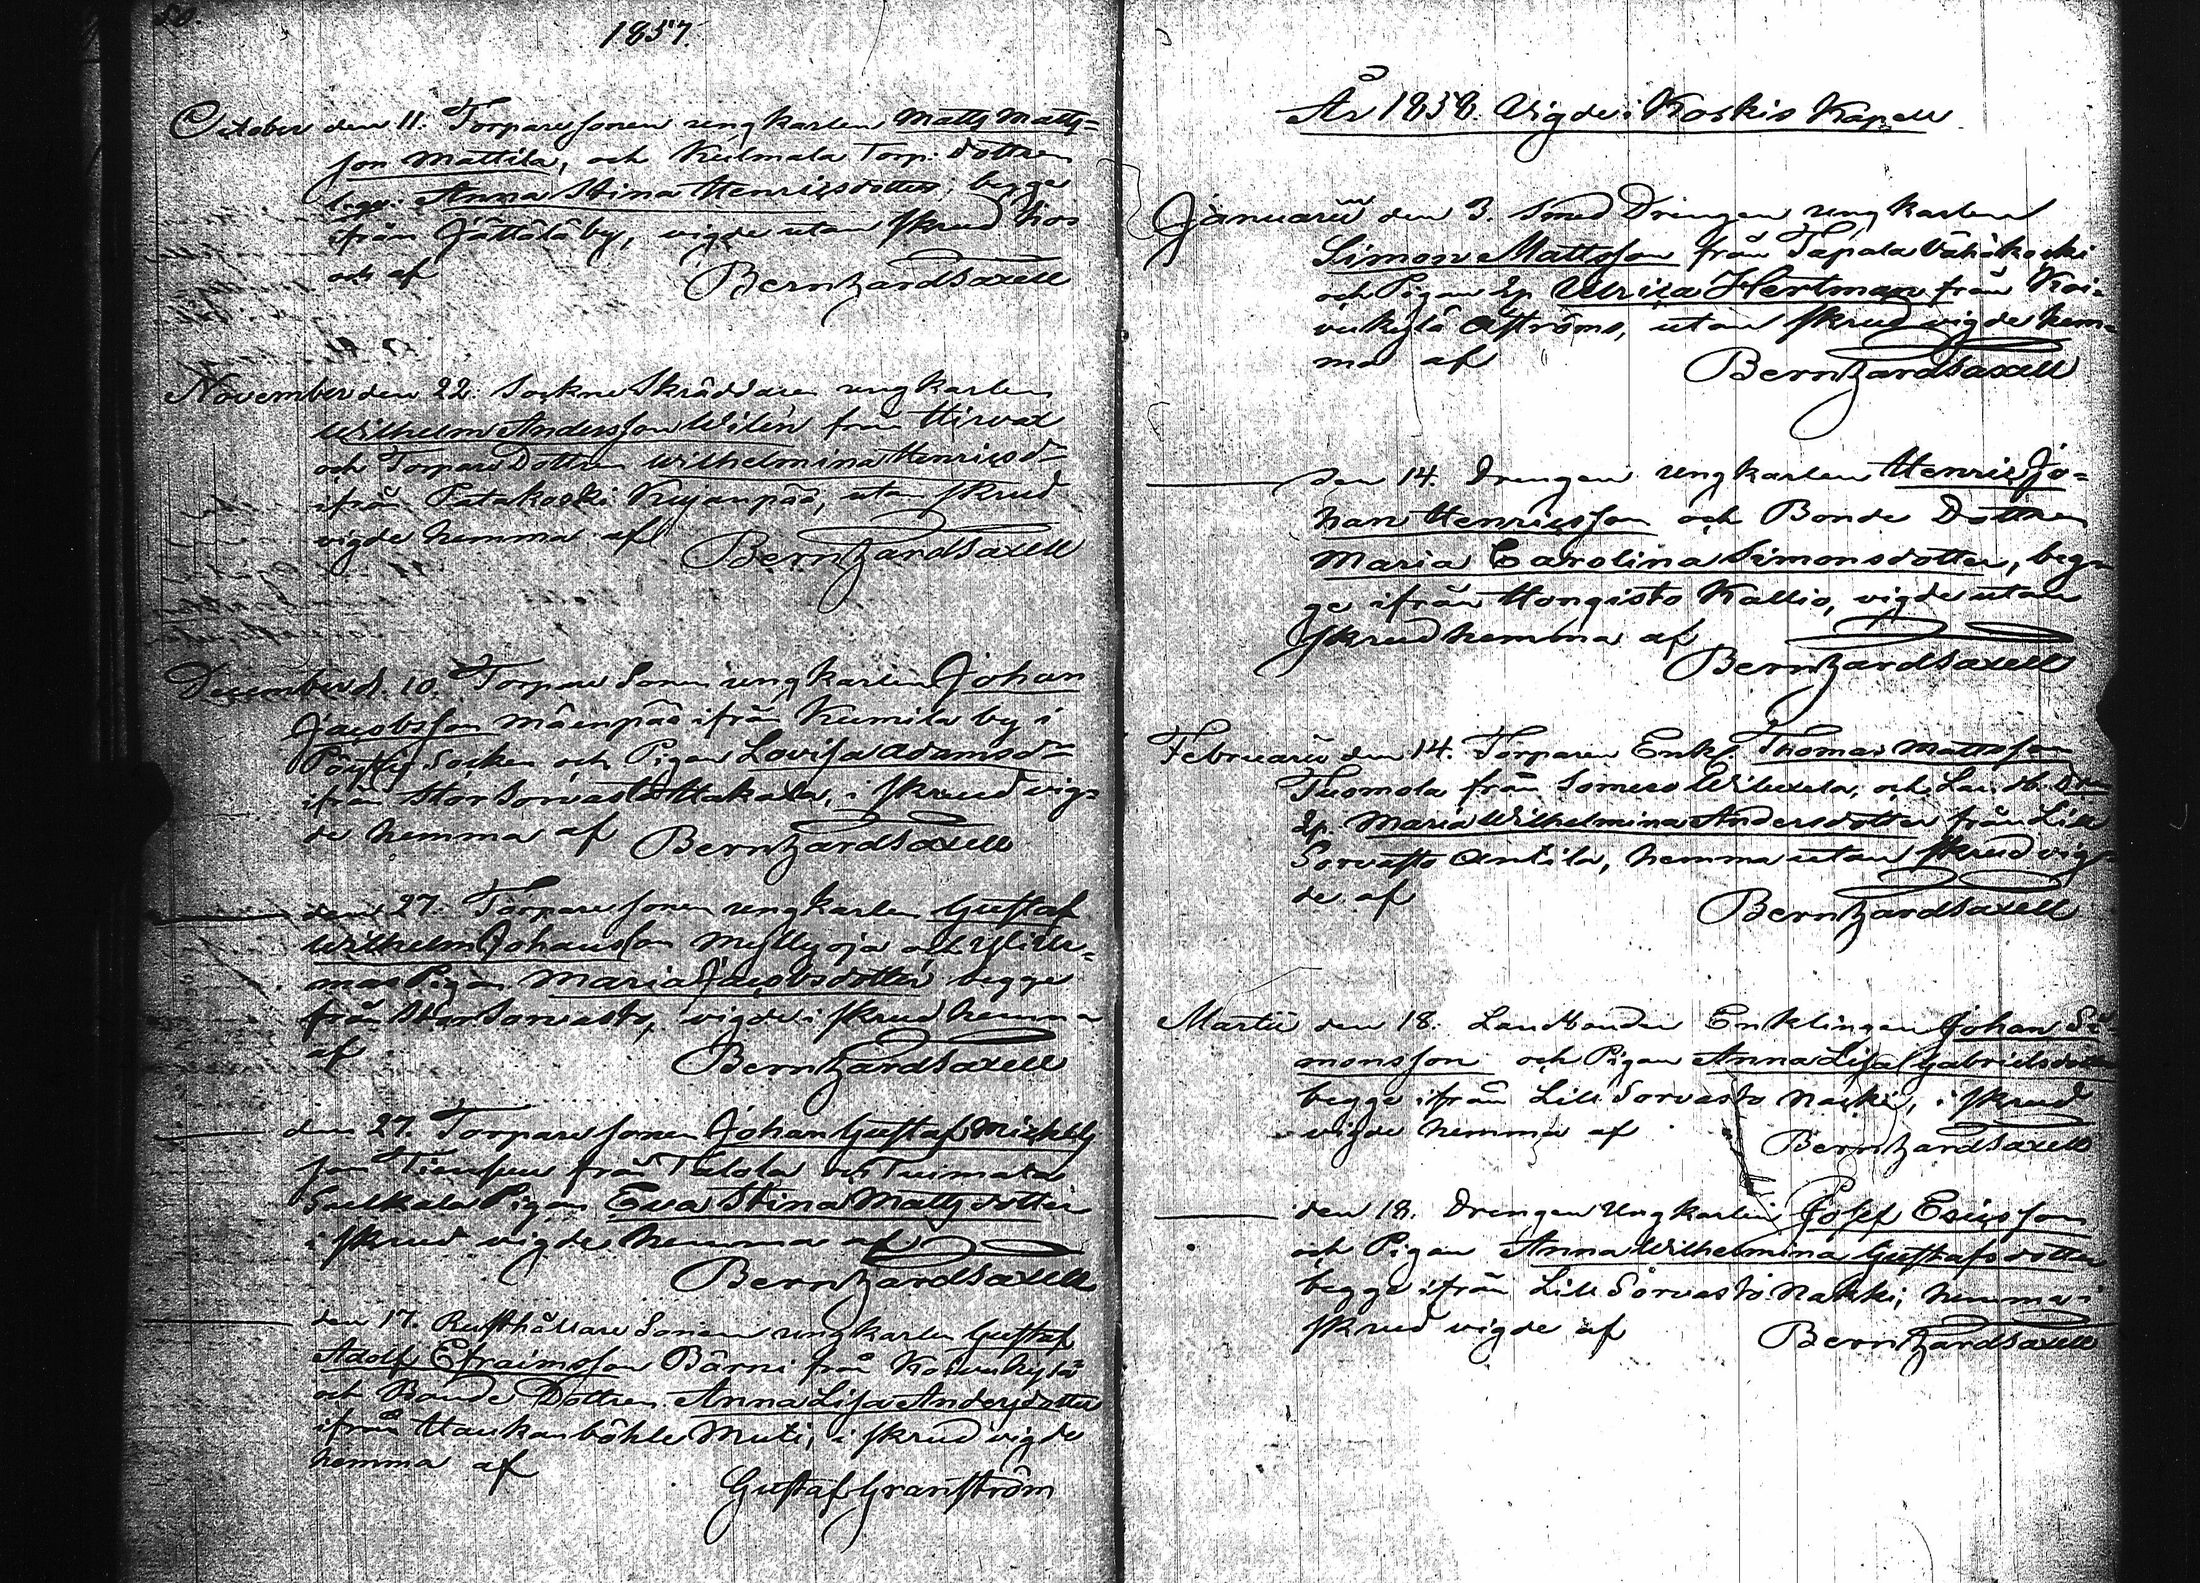 50.
1857.
October den 11. Torpare sonen ungkarlen Matts Matts=
son Mattila, och Kulmala Torp: dottren
Anna Stina Henricsdotter; begge
ifrån Jättälä by, vigde utan skrud hos
och af Bernh:ard Saxell
November den 22. Sockne Skräddaren ungkarlen
Wilhelm Andersson Wilén från Hirvas
och Torpare Dottren Wilhelmina Henricsdr
ifrån Patakoski Kujanpää, utan skrud
vigde hemma af Bernhard Saxell
December d. 10. Torpare Sonen ungkarlen Johan
Jacobsson Mäenpää ifrån Kumila by i
Pöytis Socken och Pigan Lovisa Adamsdr
ifrån StorSorvasto Hakala, i skrud vig=
de hemma af Bernhard Saxell
den 27. Torpare sonen ungkarlen Gustaf
Wilhelm Johansson Myllyoja och
Pigan Maria Jacobsdotter begge
från StorSorvasto, vigde i skrud hemma
af Bernhard Saxell
den 27. Torpare sonen Johan Gustaf Michels
son från Talola och Tuimala
Pigan Eva Stina Mattsdotter
i skrud vigde hemma af
Bernhard Saxell
den 17. Rusthållare Sonen ungkarlen Gustaf
Adolf Efraimsson Bärni från Koivukylä
och Bonde Dottren Anna Lisa Andersdotter
ifrån Haukanböhle Muti, i skrud vigde
hemma af
Gustaf Granström
År 1858. Vigde i Koskis Kapell
Januarii den 3. Smed Drengen ungkarlen
Simon Mattsson från Tapala Vähäkoski
och Pigan Ep. Ulrica Hertman från Koi=
vukylä Åströms, utan skrud vigde hem=
ma af Bernhard Saxell
den 14. Drengen ungkarlen Henric Jo=
han Henricsson och Bonde Dottren
Maria Carolina Simonsdotter, beg=
ge ifrån Hongisto Kallio, vigde utan
skrud hemma af
Bernhard Saxell
Februarii den 14. Torparen Enkl. Thomas Mattsson
Tuomola från Somero Wiluxela, och
Ep. Maria Wilhelmina Andersdotter från Lill
Sorvasto Antila, hemma utan skrud vig=
de af Bernhard Saxell
Martii den 18. Landbonden Enklingen Johan Si=
monsson och Pigan Anna Lisa Gabrielsdotter
begge ifrån Lill Sorvasto Nacki, i skrud
vigde hemma af Bernhard Saxell
den 18. Drengen Ungkarlen Josef Ericsson
och Pigan Anna Wilhelmina Gustafsdotter
begge ifrån Lill Sorvasto Nakki, hemma i
skrud vigde af Bernhard Saxell